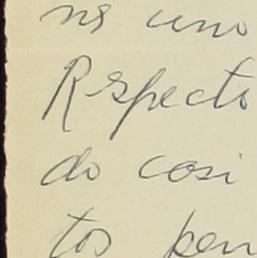 ns uno
Respecto
do casi
tos pen